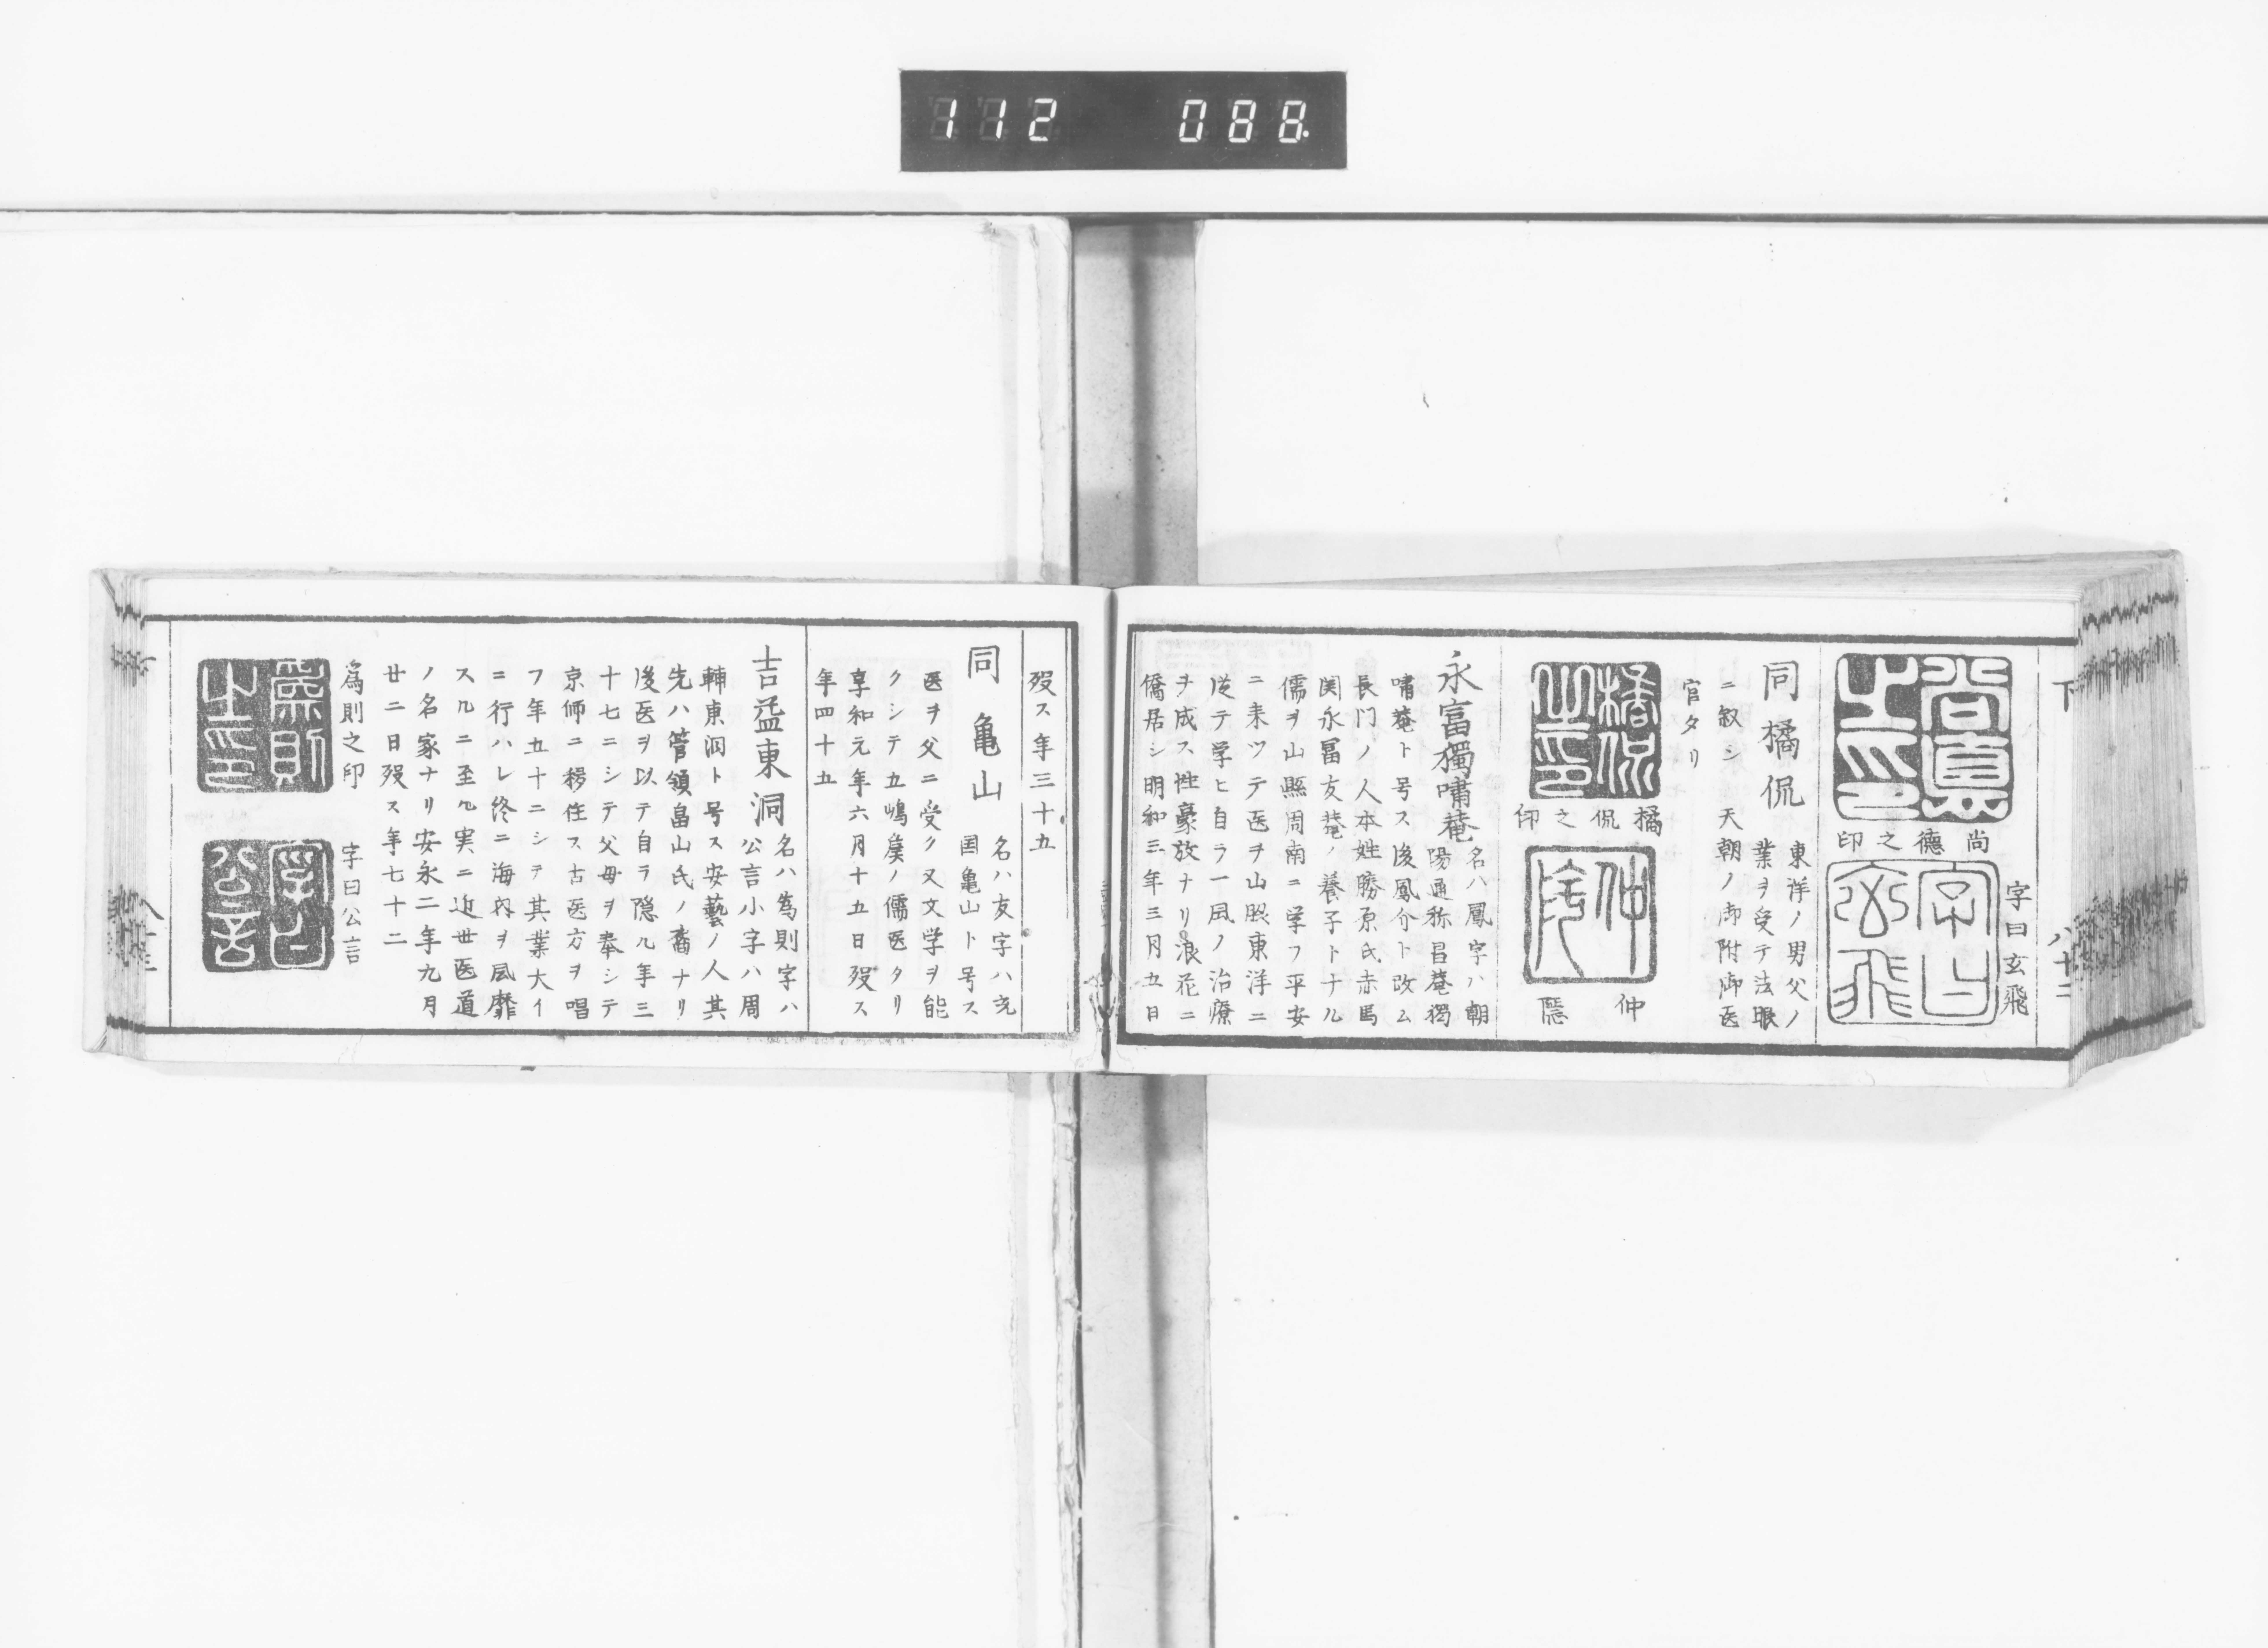 112 088.
下
八十二
尚德之印
字曰玄飛
尚德之印
字曰玄飛
同橘侃
東洋ノ男父ノ
業ヲ受テ法眼
ニ叙シ 天朝ノ御附御医
官タリ
橘侃之印
橘侃之印
仲隱
仲隱
永富獨嘯菴
名ハ鳳字ハ朝
陽通称昌菴獨
嘯菴ト号ス後鳳介ト改ム
長門ノ人本姓勝原氏赤馬
関永冨友菴ノ養子トナル
儒ヲ山縣周南ニ学フ平安
ニ来ツテ医ヲ山脇東洋ニ
従テ学ヒ自ラ一風ノ治療
ヲ成ス性豪放ナリ浪花ニ
僑居シ明和三年三月五日
歿ス年三十五
同亀山
名ハ友字ハ充
国亀山ト号ス
医ヲ父ニ受ク又文学ヲ能
クシテ五嶋矦ノ儒医タリ
享和元年六月十五日歿ス
年四十五
吉益東洞
名ハ為則字ハ
公言小字ハ周
輔東洞ト号ス安藝ノ人其
先ハ管領畠山氏ノ裔ナリ
後医ヲ以テ自ラ隠ル年三
十七ニシテ父母ヲ奉シテ
京师ニ移住ス古医方ヲ唱
フ年五十ニシテ其業大イ
ニ行ハレ終ニ海内ヲ風靡
スルニ至ル実ニ近世医道
ノ名家ナリ安永二年九月
廿二日歿ス年七十二
爲則之印
字曰公言
爲則之印
字曰公言